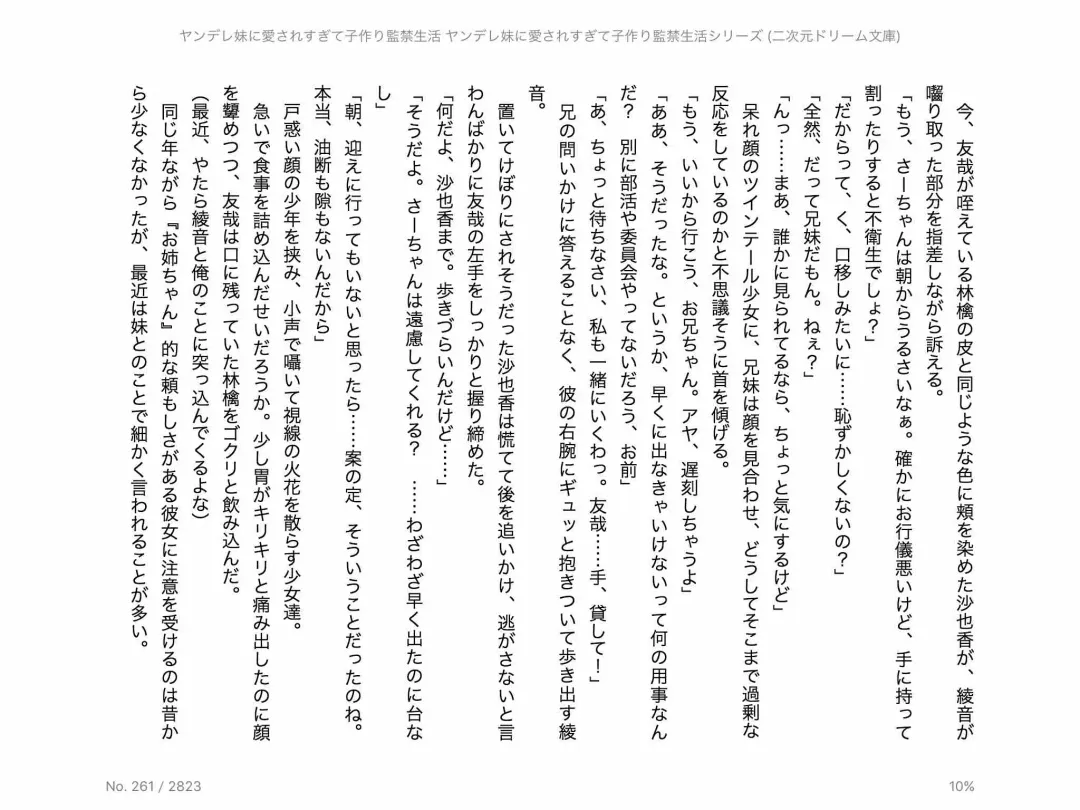 ヤンデレ妹に愛されすぎて子作り監禁生活 ヤンデレ妹に愛されすぎて子作り監禁生活シリーズ (二次元ドリーム文庫)
今、友哉が咥えている林檎の皮と同じような色に頬を染めた沙也香が、綾音が
囓り取った部分を指差しながら訴える。
「もう、さーちゃんは朝からうるさいなぁ。確かにお行儀悪いけど、手に持って
割ったりすると不衛生でしょ？」
「だからって、く、口移しみたいに……恥ずかしくないの？」
「全然、だって兄妹だもん。ねぇ？」
「んっ……まあ、誰かに見られてるなら、ちょっと気にするけど」
呆れ顔のツインテール少女に、兄妹は顔を見合わせ、どうしてそこまで過剰な
反応をしているのかと不思議そうに首を傾げる。
「もう、いいから行こう、お兄ちゃん。アヤ、遅刻しちゃうよ」
「ああ、そうだったな。というか、早くに出なきゃいけないって何の用事なん
だ？　別に部活や委員会やってないだろう、お前」
「あ、ちょっと待ちなさい、私も一緒にいくわっ。友哉……手、貸して！」
兄の問いかけに答えることなく、彼の右腕にギュッと抱きついて歩き出す綾
音。
置いてけぼりにされそうだった沙也香は慌てて後を追いかけ、逃がさないと言
わんばかりに友哉の左手をしっかりと握り締めた。
「何だよ、沙也香まで。歩きづらいんだけど……」
「そうだよ。さーちゃんは遠慮してくれる？　……わざわざ早く出たのに台な
し」
「朝、迎えに行ってもいないと思ったら……案の定、そういうことだったのね。
本当、油断も隙もないんだから」
戸惑い顔の少年を挟み、小声で囁いて視線の火花を散らす少女達。
急いで食事を詰め込んだせいだろうか。少し胃がキリキリと痛み出したのに顔
を顰めつつ、友哉は口に残っていた林檎をゴクリと飲み込んだ。
（最近、やたら綾音と俺のことに突っ込んでくるよな）
同じ年ながら『お姉ちゃん』的な頼もしさがある彼女に注意を受けるのは昔か
ら少なくなかったが、最近は妹とのことで細かく言われることが多い。
No. 261 / 2823
10%